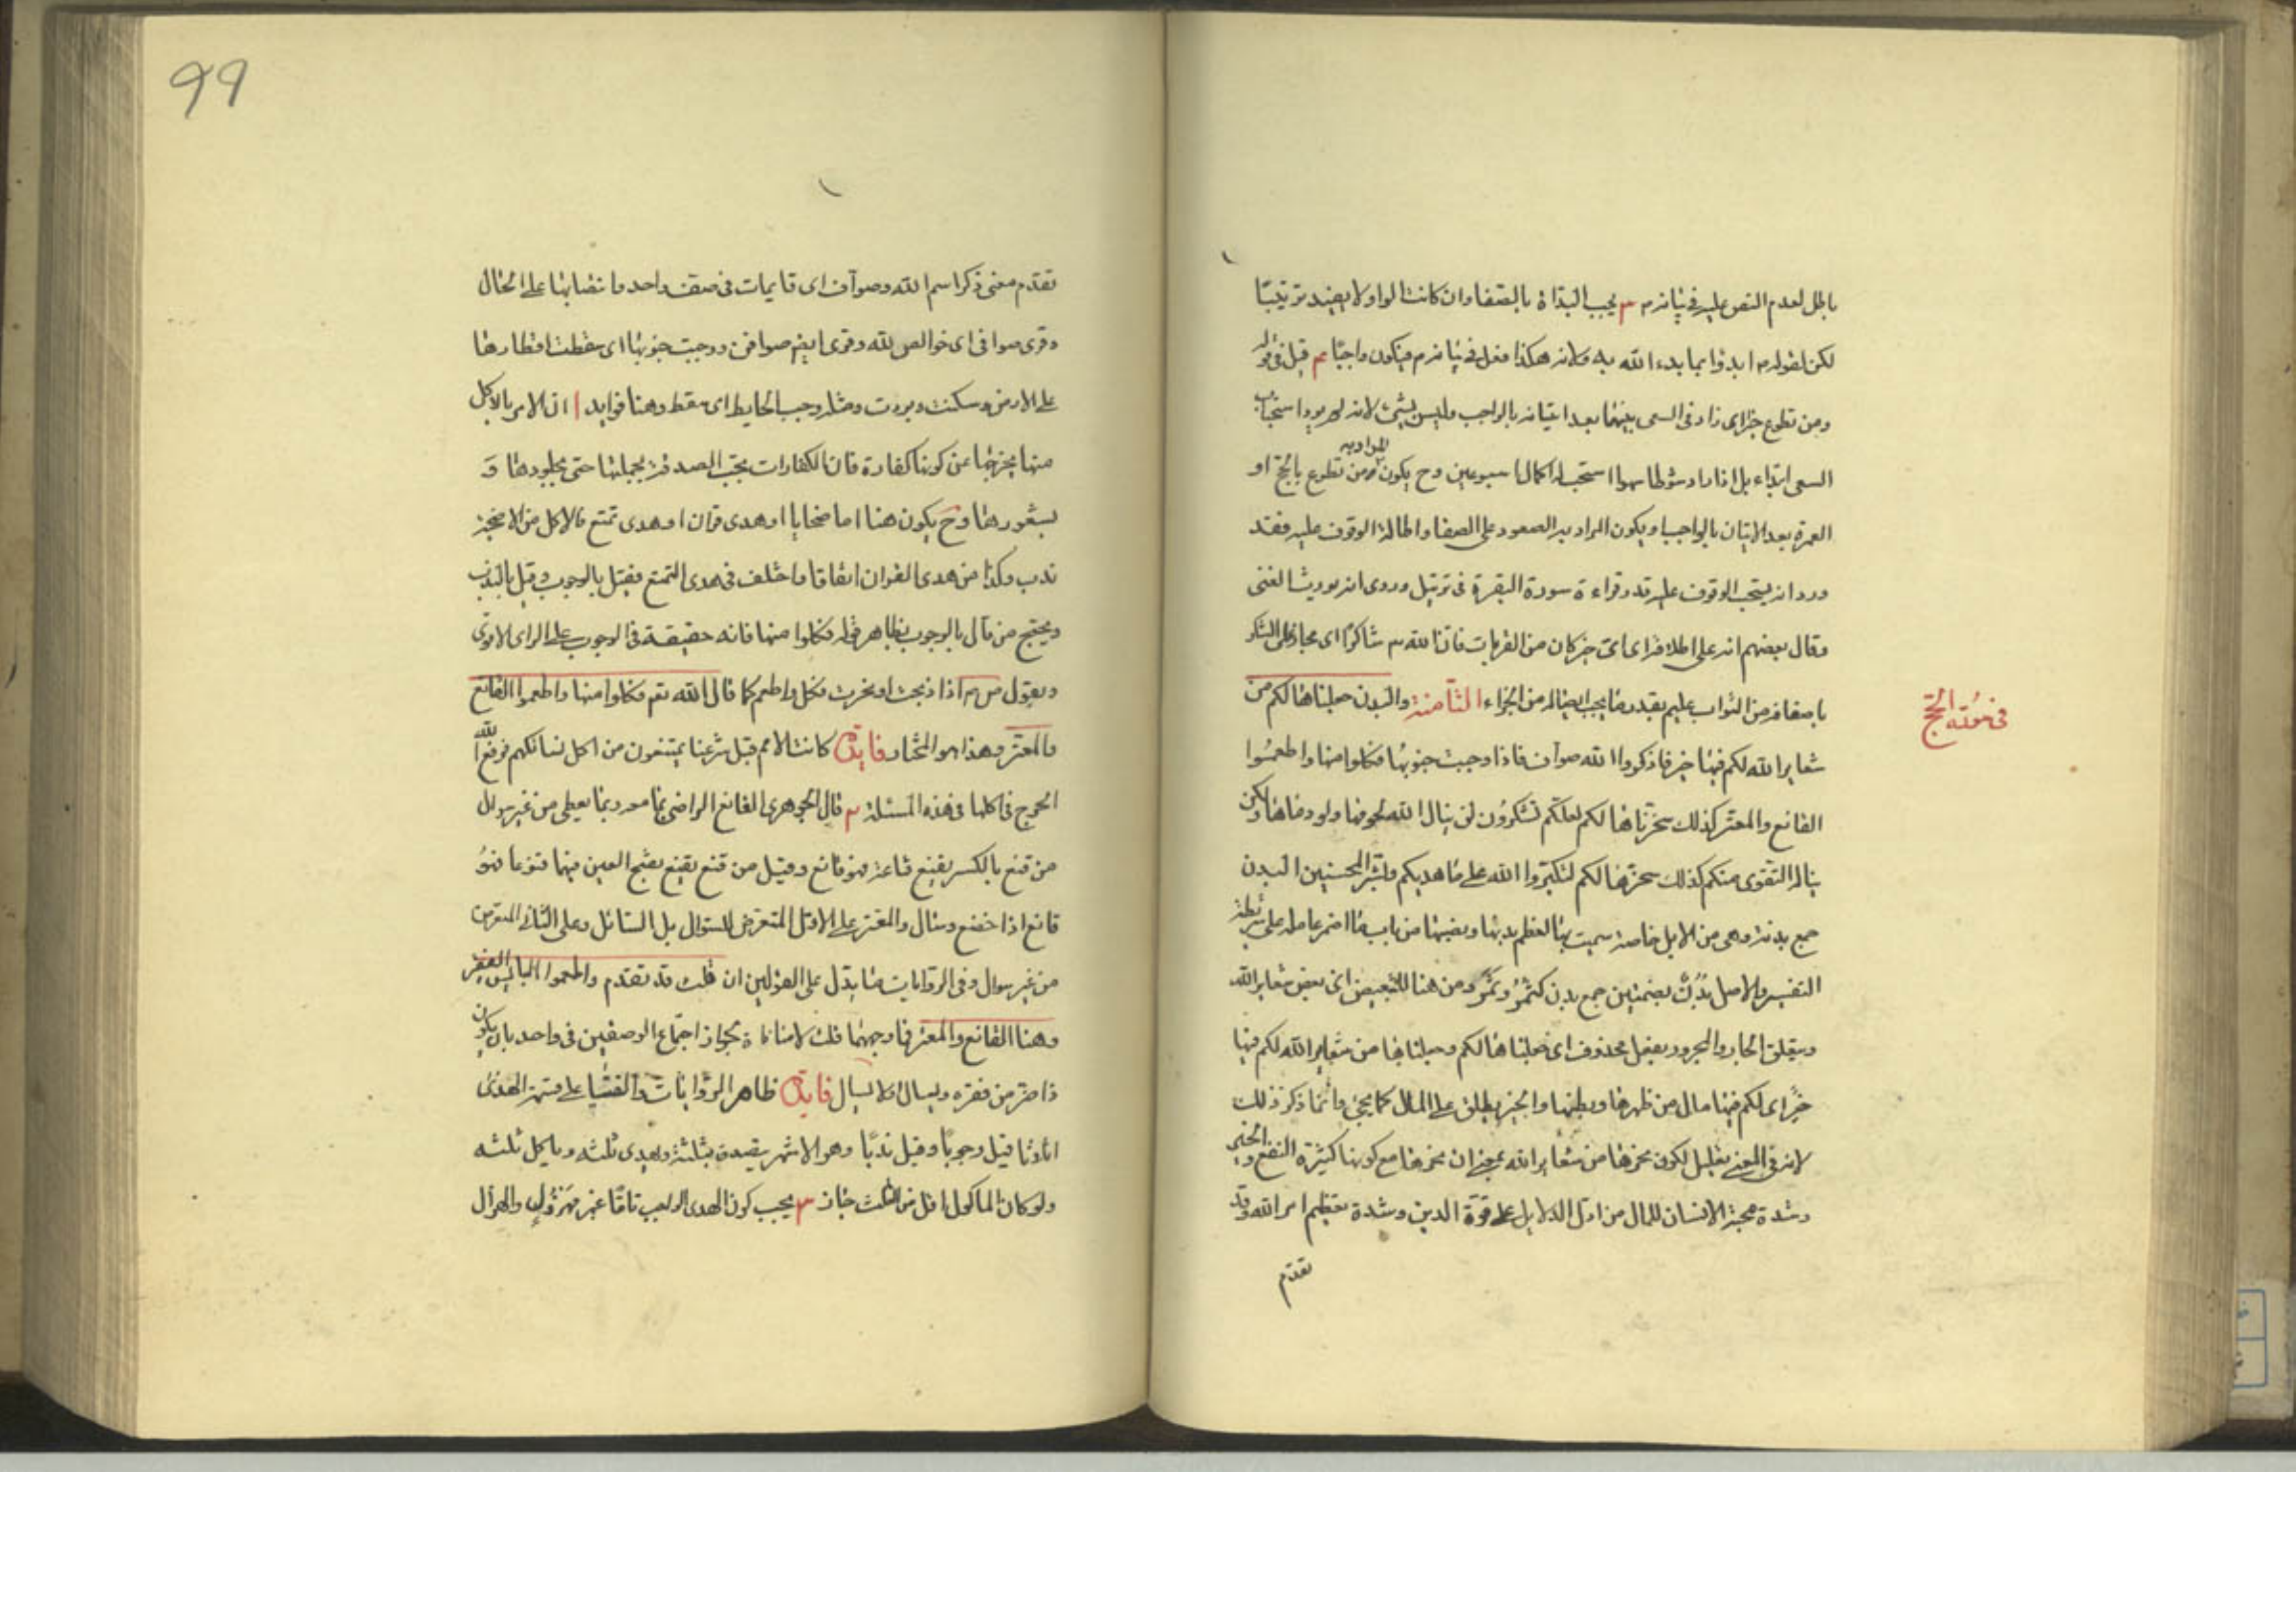 باطل لعدم النص عليه في بيانه م ٣ يجب البدأة بالصفا وان كانت الواو لا يفيد ترتيبا
لكن لقوله م ابدؤا بما بدء الله به ولانه هكذا فعل في بيانه م فيكون واجبا ٤ قيل في قوله
ومن تطوع خيرا اى زاد في السعى بينهما بعد اتيانه بالواجب وليس بشئ لانه لم يرد استحباب
السعى ابتداء بل اذا زاد شوطا سهوا استحب له اكمال اسبوعين وح يكون المراد به ومن تطوع بالحج او
العمرة بعد الاتيان بالواجب او يكون المراد به الصعود على الصفا واطالة الوقوف عليه فقد
ورد انه يستحب الوقوف عليه قدر قراءة سورة البقرة في ترتيل وروى انه يورث الغنى
وقال بعضهم انه على اطلاقه اى اى خير كان من القربات فان الله شاكر اى مجاز على الشكر
باضعافه من الثواب عليم بقدر ما يجب ايصاله من الجزاء الثامنة والبدن جعلناها لكم من
في مؤنة الحج
شعاير الله لكم فيها خير فاذكروا الله صواف فاذا وجبت جنوبها فكلوا منها واطعموا
القانع والمعتر كذلك سخرناها لكم لعلكم تشكرون لن ينال الله لحومها ولا دماؤها ولكن
يناله التقوى منكم كذلك سخرها لكم لتكبروا الله على ما هديكم وبشر المحسنين البدن
جمع بدنة وهى من الابل خاصة سميت بها لعظم بدنها ونصبها من باب ما اضمر عامله على شريطة
التفسير والاصل بدن بضمتين جمع بدن كثمر وثمر ومن هنا للتبعيض اى بعض شعاير الله
ويتعلق الجار والمجرور بفعل محذوف اى جعلناها لكم وجعلناها من شعاير الله لكم فيها
خير اى لكم فيها مال من ظهرها وبطنها والخير يطلق على المال كما يجئ وانما ذكر ذلك
لانه في المعنى تعليل لكون نحرها من شعاير الله بمعنى ان نحرها مع كونها كثيرة النفع والخير
وشدة محبة الانسان للمال من ادل الدلايل على قوة الدين وشدة تعظيم امر الله وقد
تقدم
99
تقدم معنى ذكر اسم الله وصواف اى قايمات في صف واحد وانتصابها على الحال
وقرى صوافى اى خوالص لله وقرى ايضا صوافن ووجبت جنوبها اى سقطت اقطارها
على الارض وسكنت وبردت ومثله وجب الحايط اى سقط وهنا فوايد ا ان الامر بالاكل
منها يخرجها عن كونها كفارة فان الكفارات يجب الصدقة بجملتها حتى بجلودها و
بشعورها وح يكون هنا اما ضحايا او هدى قران او هدى تمتع فالاكل من الاضحية
ندب وكذا من هدى القران اتفاقا واختلف في هدى التمتع فقيل بالوجوب وقيل بالندب
ويحتج من قال بالوجوب بظاهر قوله فكلوا منها فانه حقيقة في الوجوب على الراى الاقوى
وبقول ص م اذا ذبحت او نحرت فكل واطعم كما قال الله تعم فكلوا منها واطعموا القانع
والمعتر وهذا هو المختار فايدة كانت الامم قبل شرعنا يمتنعون من اكل نسائكهم فرفع الله
الحرج في اكلها في هذه المسئلة ٢ قال الجوهرى القانع الراضى بما معه وبما يعطى من غير سوال
من قنع بالكسر يقنع قناعة فهو قانع وقيل من قنع يقنع بفتح العين فيهما قنوعا فهو
قانع اذا خضع وسال والمعتر على الاول المتعرض للسوال بل السائل وعلى الثانى المتعرض
من غير سوال وفي الروايات ما يدل على القولين ان قلت قد تقدم واطعموا البايس الفقير
وهنا القانع والمعتر فما وجهها قلت لا منافاة لجواز اجتماع الوصفين في واحد بان يكون
ذا ضر من فقره ويسال او لا يسال فايدة ظاهر الروايات والفتيا على قسمة الهدى
اثلاثا قيل وجوبا وقيل ندبا وهو الاشهر يصدق بثلثه ويهدى ثلثه وياكل ثلثه
ولو كان الماكول اقل من الثلث جاز ٣ يجب كون الهدى الواجب تاما غير مهزول والهزال